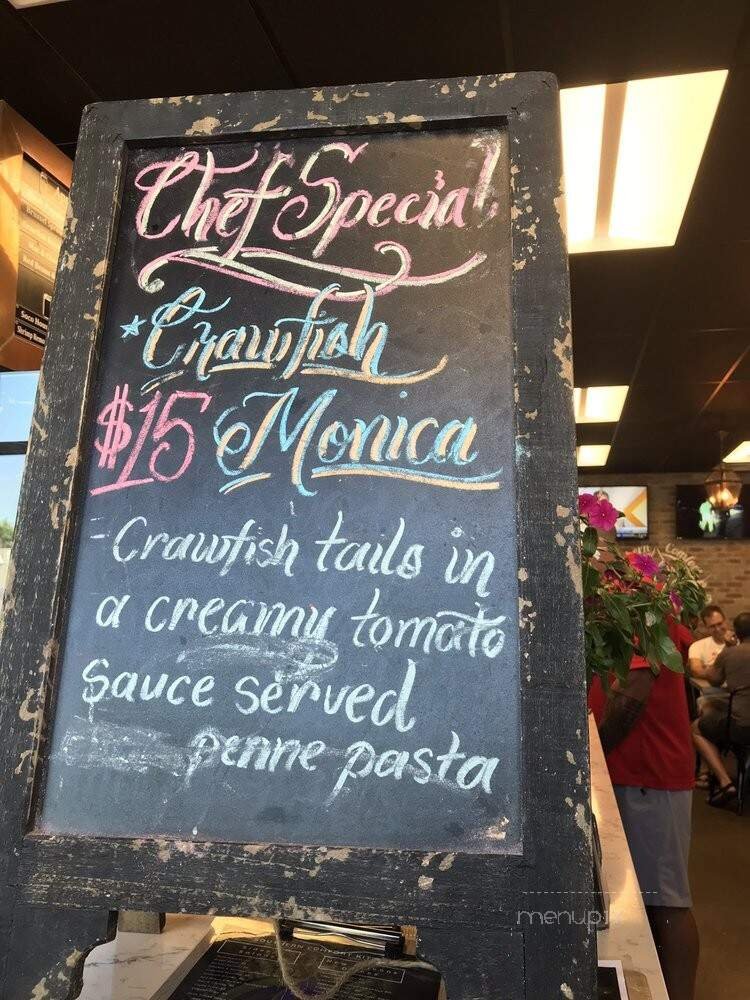 Chef Special
*Crawfish
$15 Monica
- Crawfish tails in
a creamy tomato
sauce served
penne pasta
menupi